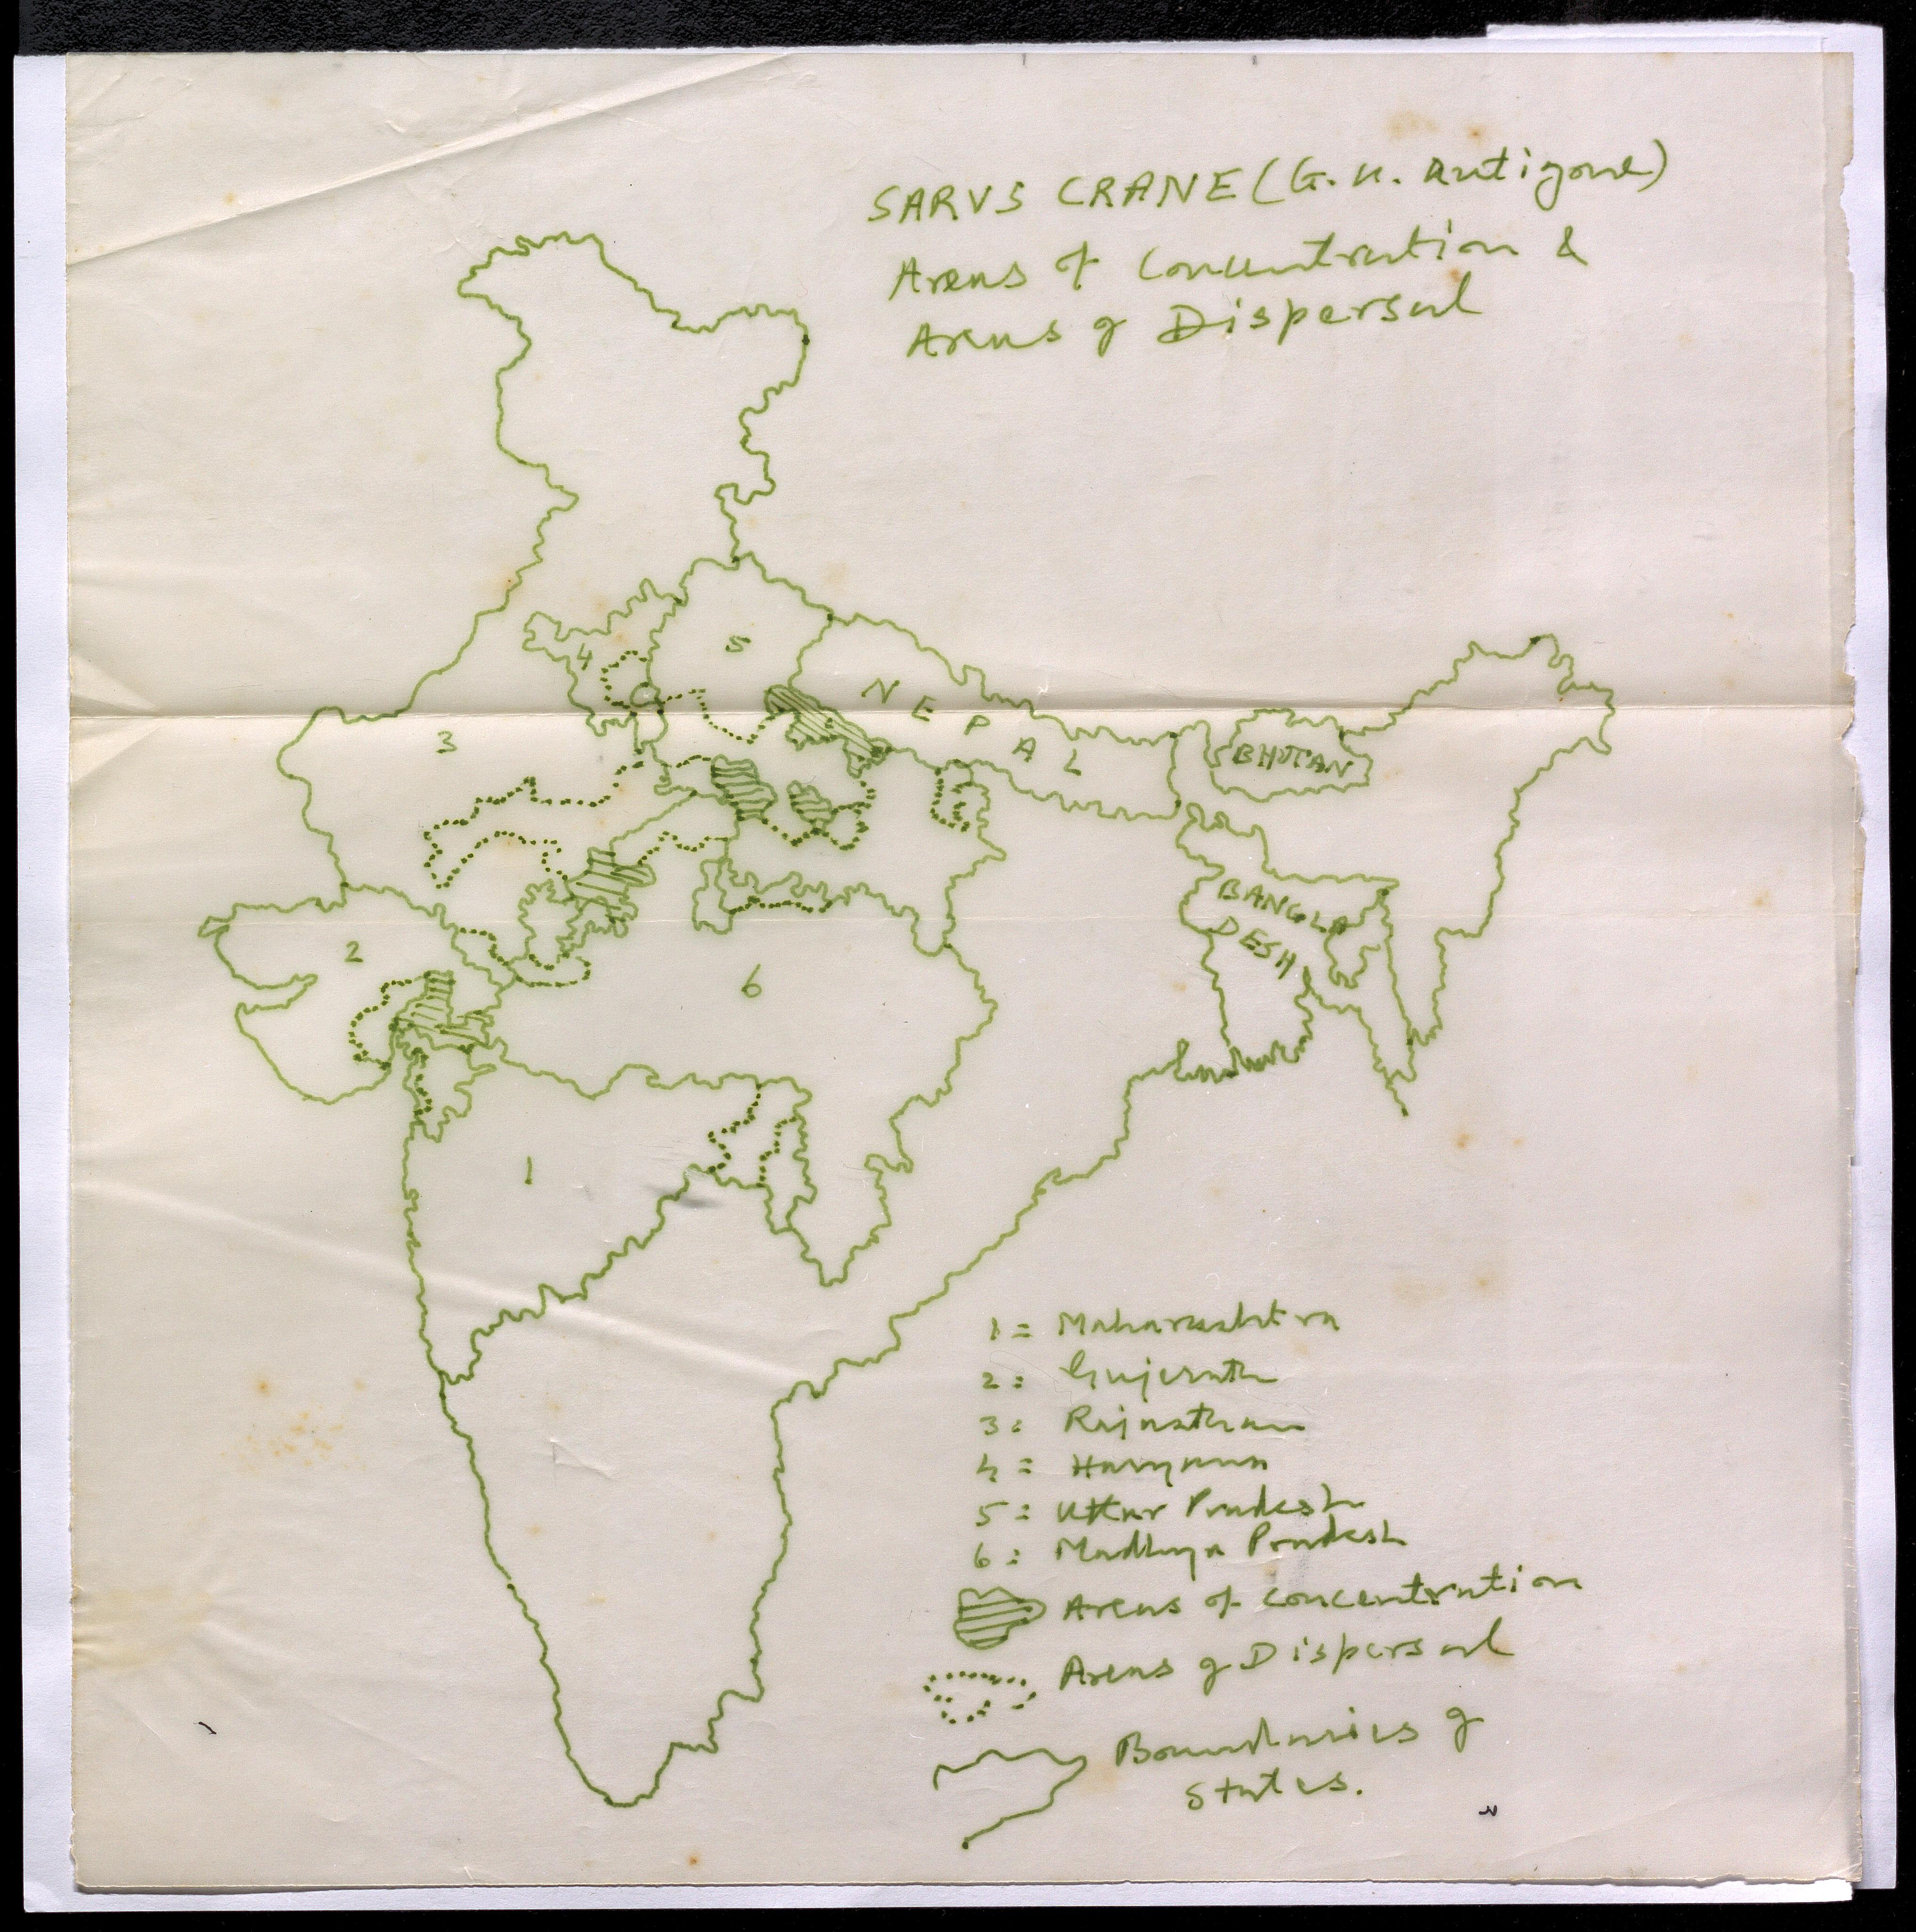 SARUS CRANE (G. a. Antigone)
Areas of Concentration &
Areas of Dispersal
5
4
3
NEPAL
BHUTAN
BANGLA
DESH
2
6
1
1 = Maharashtra
2 : Gujerath
3 : Rajasthan
4 = Haryana
5 : Uttar Pradesh
6 : Madhya Pradesh
Areas of concentration
Areas of Dispersal
Boundaries of
States.